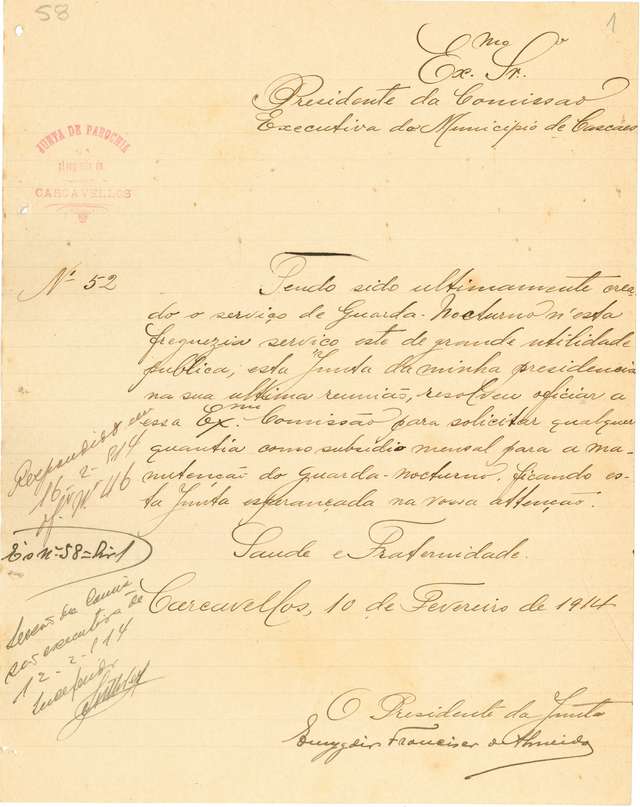 58
1
Exmo Sr.
Presidente da Comissão
Executiva do Municipio de Cascaes
JUNTA DE PAROCHIA
CARCAVELLOS
Nº 52
Tendo sido ultimamente crea-
do o serviço de Guarda-Nocturno n'esta
freguezia serviço este de grande utilidade
publica, esta Junta da minha presidencia
na sua ultima reunião, resolveu oficiar a
essa Exma Comissão para solicitar qualquer
quantia como subsidio mensal para a ma-
nutenção do Guarda-nocturno, ficando es-
ta Junta esperançada na vossa attenção.
Saude e Fraternidade.
Carcavellos, 10 de Fevereiro de 1914
O Presidente da Junta
Emygdio Francisco d'Almeida
Respondido em
16-2-914
of. Nº 46
Es Nº 58-
Sessão da Comis
são executiva de
12-2-914